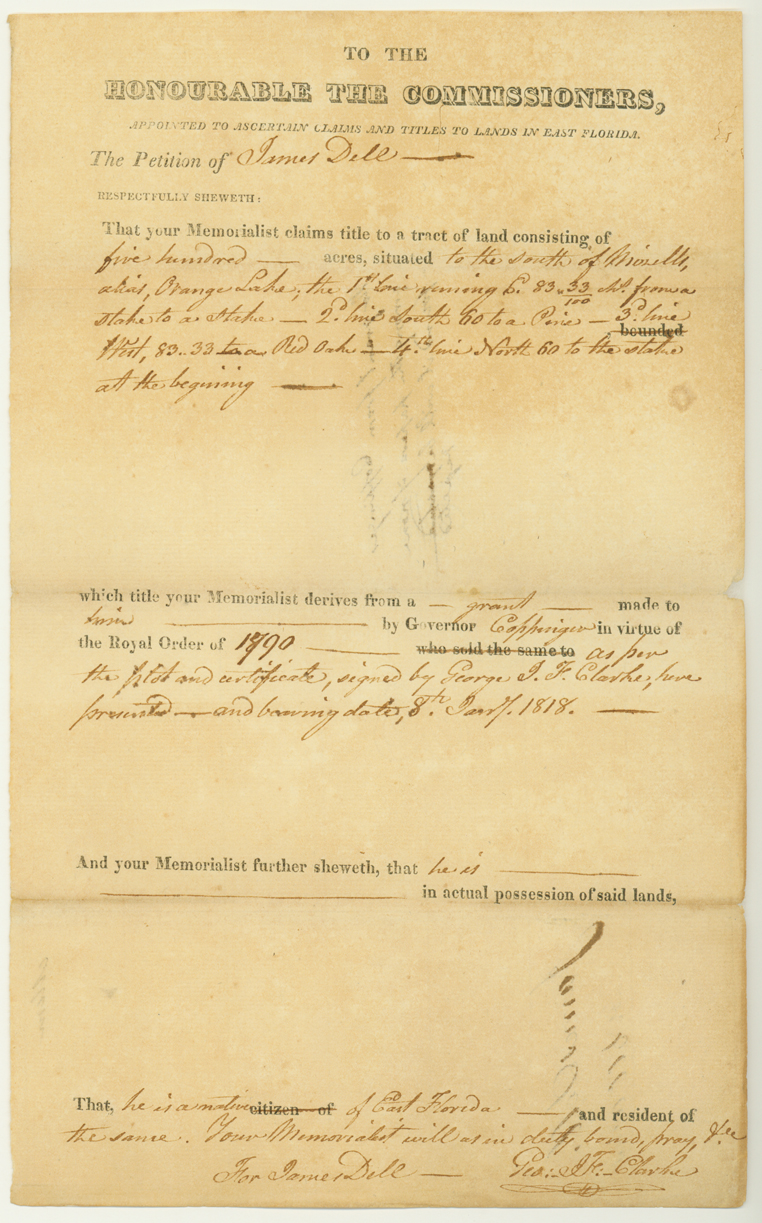 TO THE
HONOURABLE THE COMMISSIONERS,
APPOINTED TO ASCERTAIN CLAIMS AND TITLES TO LANDS IN EAST FLORIDA.
The Petition of James Dell
RESPECTFULLY SHEWETH:
That your Memorialist claims title to a tract of land consisting of
five hundred — acres, situated to the south of
alias, Orange Lake; the 1st line runing E. 83..33/100 from a
stake to a stake — 2d. line South 60 to a Pine — 3d. line
bounded
West, 83..33 to a Red Oake — 4th. line North 60 to the stake
at the begining —
which title your Memorialist derives from a — grant — made to
him — by Governor Coppinger in virtue of
the Royal Order of 1790 — who sold the same to as per
the plot and certificate, signed by George J. F. Clarke, here
presented — and bearing date, 8th. Jany. 1818. —
And your Memorialist further sheweth, that he is —
— in actual possession of said lands,
That, he is a native citizen of of East Florida — and resident of
the same. Your Memorialist will as in duty bound, pray, &ce
For James Dell — Geo: J. F. Clarke